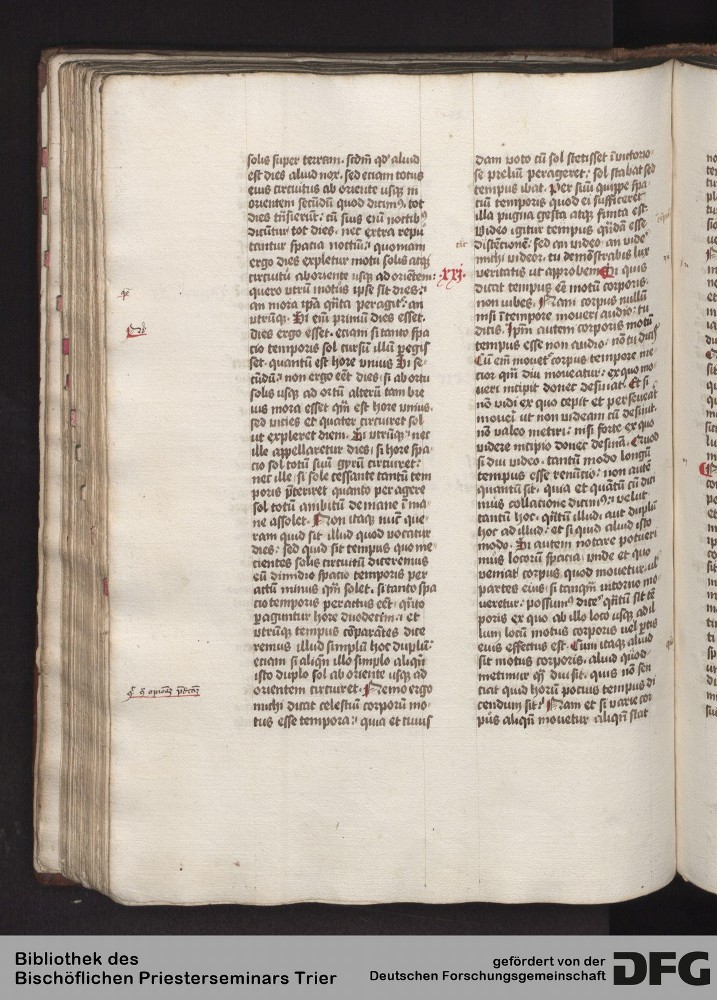 solis super terram. scdm qd aliud
est dies aliud nox. sed eciam totus
eius circuitus ab oriente usq; in
orientem secūdū quod dicimꝰ tot
dies trāsierūt: cū suis enī noctibꝰ
dicūtur tot dies. nec extra repu
tantur spatia noctiū: quoniam
ergo dies expletur motu solis atq;
circuitu ab oriente usq; ad orientem:
quero utrū motus ipse sit dies:
an mora ipā qn̄ta peragit᷑: an
utrūq;. Si em̄ primū dies esset.
dies ergo esset. eciam si tanto spa
cio temporis sol cursū illū pegis
set. quantū est hore vnius. Si se
cūdū: non ergo eēt dies. si ab ortu
solis usq; ad ortū alterū tam bre
uis mora esset qm̄ est hore vnius.
sed vicies et quater circuiret sol
ut expleret diem. Si utrūq;: nec
ille appellaretur dies: si hore spa
cio sol totū suū gyrū circuiret:
nec ille: si sole cessante tantū tem
poris pteriret quanto per agere
sol totū ambitū de mane ī ma
ne assolet. Non itaq; nūc que
ram quid sit illud quod vocatur
dies: sed quid sit tempus quo me
cientes solis circuitū diceremus
eū dimidio spacio temporis per
actū minus qm̄ solet. si tanto spa
cio temporis peractus eēt. qn̄to
paguntur hore duodecim: et
utrūq; tempus cōparātes dice
remus illud simplū hoc duplū:
eciam si aliqn̄ illo simplo aliqn̄
isto duplo sol ab oriente usq; ad
orientem circuiret. Nemo ergo
michi dicat celestiū corporū mo
tus esse tempora: quia et cuius
dam voto cū sol stetisset ī victorio
se preliū perageret: sol stabat sed
tempus ibat. Per suū quippe spa
ciū temporis quod ei sufficeret
illa pugna gesta atq; finita est.
Video igitur tempus qūdā esse
distētionē: sed an video. an vide
michi videor: tu demōstrabis lux
veritatis ut approbem. Si quis
.xxj.
dicat tempus eē motū corporis.
non iubes. Nam corpus nullū
nisi ī tempore moueri audio: tu
dicis. Ipm̄ autem corporis motū
tempus esse non audio: nō tu dicis
Cū em̄ mouet᷑ corpus tempore me
cior qm̄ diu moueatur: ex quo mo
ueri incipit donec desinat. Et si
nō vidi ex quo cepit et perseuerat
moueri ut non videam cū desinit.
nō valeo metiri: nisi forte ex quo
videre incipio donec desinā. Quod
si diu video. tantū modo longū
tempus esse renūcio: non autē
quantū sit. quia et quātū cū dici
mus collacione dicimꝰ: velut
tantū hoc. qn̄tū illud: aut duplū
hoc ad illud: et si quid aliud isto
modo. Si autem notare potueri
mus locorū spacia: vnde et quo
veniat corpus quod mouetur. ut
partes eius. si tanqm̄ ī torno mo
ueretur: possumꝰ dicē qn̄tū sit tē
poris ex quo ab illo loco usq; ad il
lum locū motus corporis uel ptis
eius effectus est. Cum itaq; aliud
sit motus corporis. aliud quod
metimur qm̄ diu sit. quis nō sen
ciat quid horū pocius tempus di
cendum sit: Nam et si varie cor
pus aliqn̄ mouetur aliqn̄ stat
Bibliothek des
Bischöflichen Priesterseminars Trier
gefördert von der
Deutschen Forschungsgemeinschaft
DFG